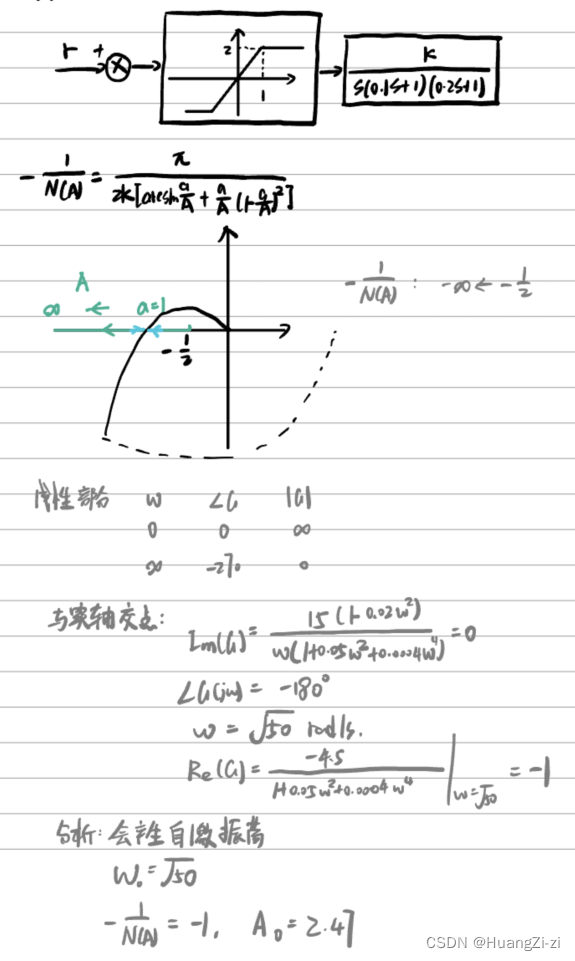 r + 2 1 K
S(0.1S+1)(0.2S+1)
-1/N(A) = π/2k[arcsin a/A + a/A (1-a/A)²]
A
∞ ← a=1
-1/N(A) : -∞ ← -1/2
-1/2
线性部分 W ∠G |G|
0 0 ∞
∞ -270 0
与实轴交点:
Im(G) = 15(1-0.02w²)/w(1+0.05w²+0.0004w⁴) = 0
∠G(jw) = -180°
w = √50 rad/s.
Re(G) = -4.5/1+0.05w²+0.0004w⁴ |w=√50 = -1
分析: 会产生自激振荡
W₀ = √50
-1/N(A) = -1, A₀ = 2.47
CSDN @HuangZi-zi